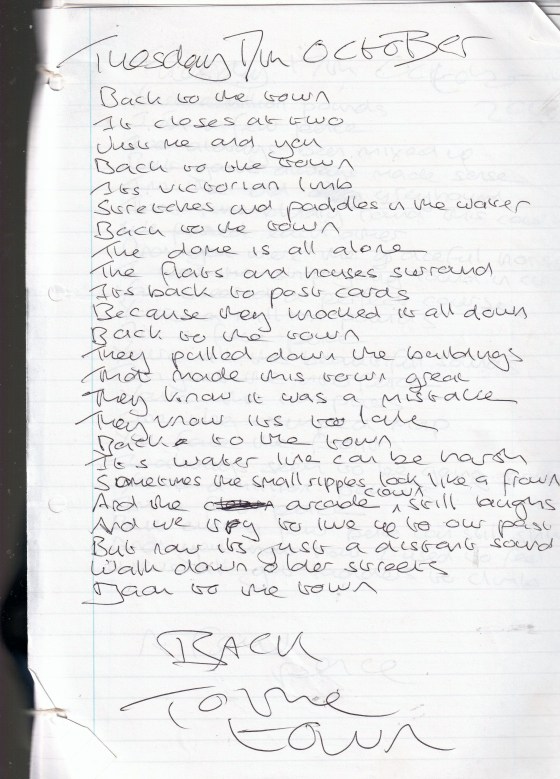 Tuesday 17th OCTOBER
Back to the town
It closes at two
Just me and you
Back to the town
Its victorian limb
Stretches and paddles in the water
Back to the town
The dome is all alone
The flats and houses surround
Its back to post cards
Because they knocked it all down
Back to the town
They pulled down the buildings
That made this town great
They know it was a mistake
They know its to late
Back to the town
It's water line can be harsh
Sometimes the small ripples look like a frown
And the arcade clown still laughs
And we try to live up to our past
But now its just a distant sound
Walk down older streets
Back to the town
BACK
To the
town